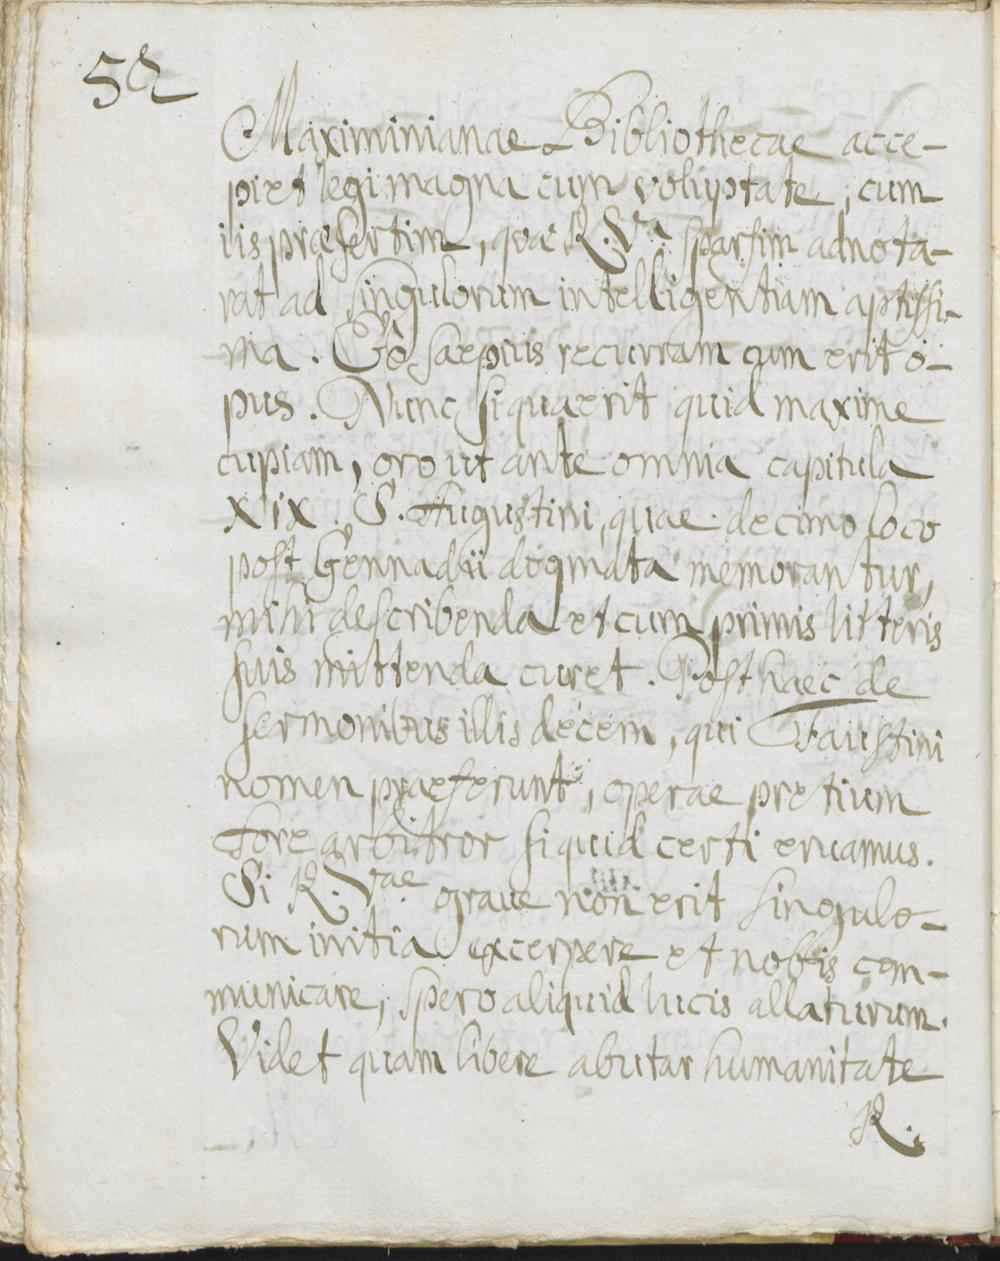 58
Maximinianae Bibliothecae acce-
pi et legi magna cum voluptate, cum
iis praesertim, quae R. Va. sparsim adnota-
rat ad singulorum intelligentiam aptissi-
ma. Eò saepius recurram cum erit o-
pus. Nunc si quaerit quid maxime
cupiam, oro ut ante omnia capitula
XIX. S. Augustini, quae decimo loco
post Gennadii dogmata memorantur,
mihi describenda et cum primis litteris
suis mittenda curet. Post haec de
sermonibus illis decem, qui Faustini
nomen praeferunt, operae pretium
fore arbitror si quid certi eruamus.
Si R. Vae grave non erit singulo-
rum initia excerpere et nobis com-
municare, spero aliquid lucis allaturum.
Videt quam libere abutar humanitate
R.